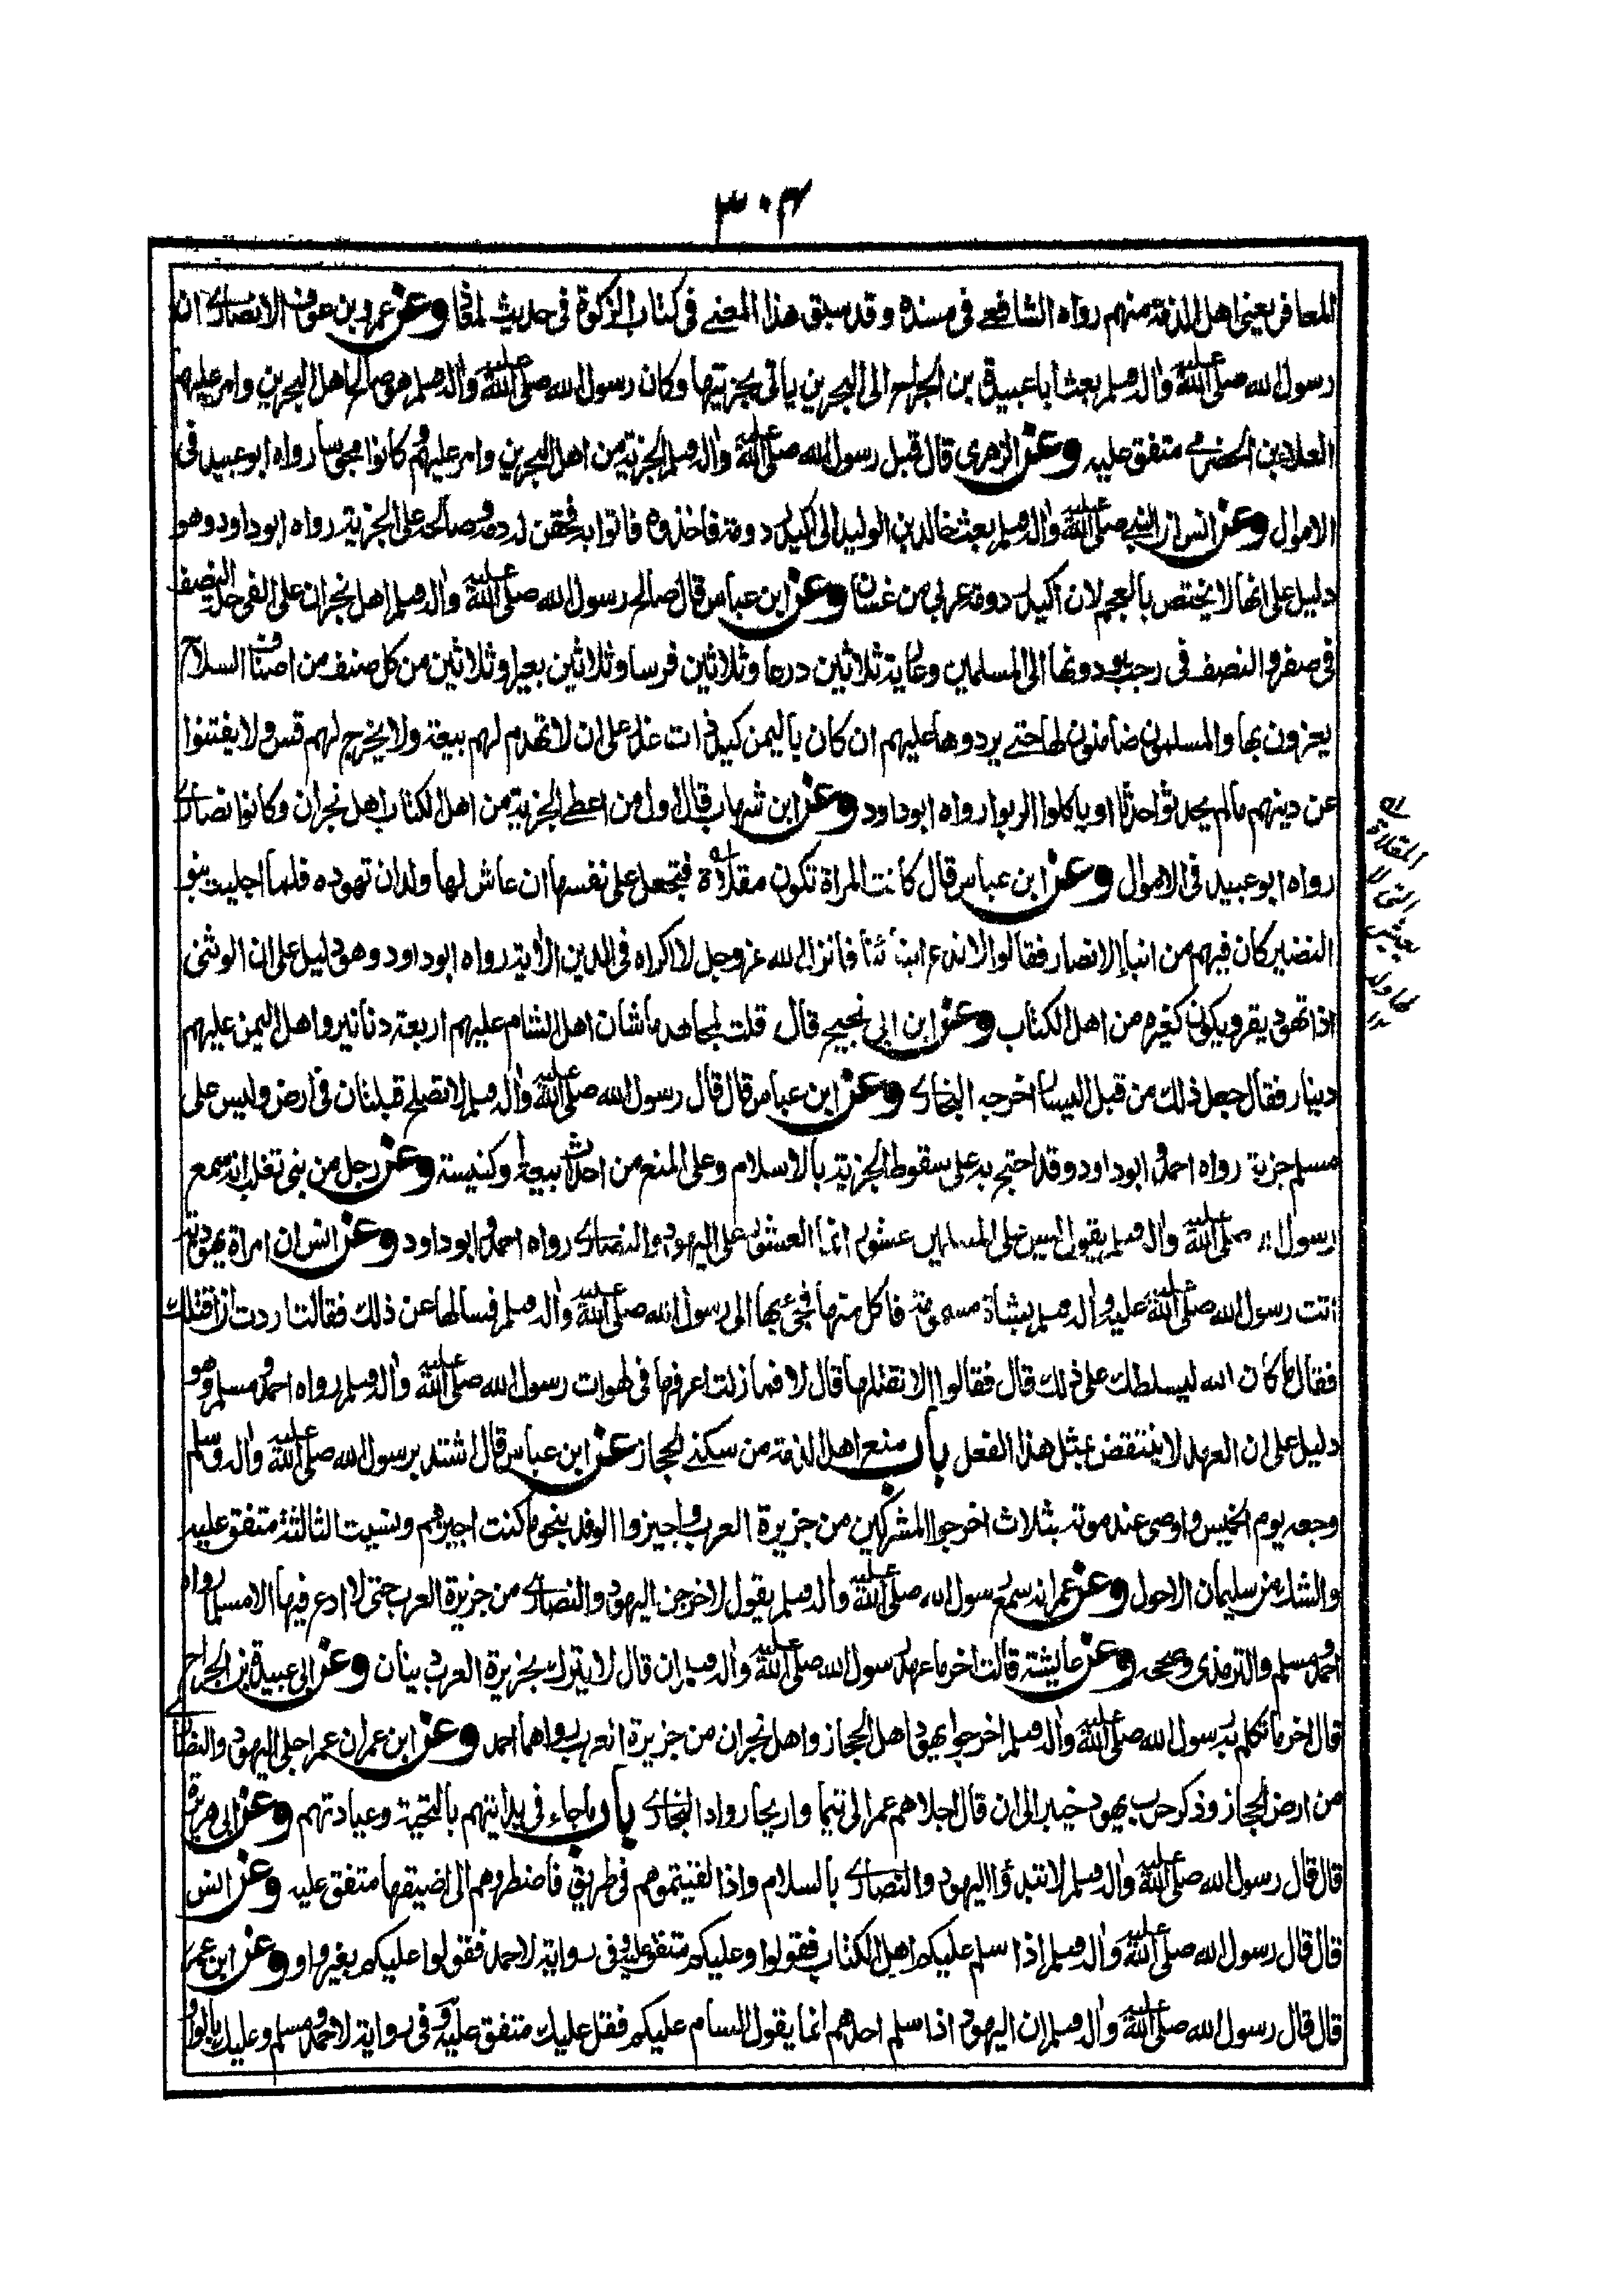 ٣٠٤
المعافر يعني اهل الذمة منهم رواه الشافعي في مسنده وقد سبق هذا المعنى في كتاب الزكوة في حديث لمعاذ وعن عمرو بن عوف الانصاري ان
رسول الله صلى الله عليه واله وسلم بعث ابا عبيدة بن الجراح الى البحرين ياتي بجزيتها وكان رسول الله صلى الله عليه واله وسلم هو صالح اهل البحرين وامر عليهم
العلاء بن الحضرمي متفق عليه وعن الزهري قال قبل رسول الله صلى الله عليه واله وسلم الجزية من اهل البحرين وامر عليهم وكانوا مجوسا رواه ابو عبيد في
الاموال وعن انس ان النبي صلى الله عليه واله وسلم بعث خالد بن الوليد الى اكيدر دومة فاخذوه فاتوا به فحقن له دمه وصالحه على الجزية رواه ابو داود وهو
دليل على انها لا يختص بالعجم لان اكيدر دومة عربي من غسان وعن ابن عباس قال صالح رسول الله صلى الله عليه واله وسلم اهل نجران على الفي حلة النصف
في صفر والنصف في رجب يودونها الى المسلمين وعارية ثلاثين درعا وثلاثين فرسا وثلاثين بعيرا وثلاثين من كل صنف من اصناف السلاح
يغزون بها والمسلمون ضامنون لها حتى يردوها عليهم ان كان باليمن كيد ذات غدر على ان لا تهدم لهم بيعة ولا يخرج لهم قس ولا يفتنوا
عن دينهم مالم يحدثوا حدثا او ياكلوا الربوا رواه ابو داود وعن ابن شهاب قال اول من اعطى الجزية من اهل الكتاب اهل نجران وكانوا نصارى
رواه ابو عبيد في الاموال وعن ابن عباس قال كانت المراة تكون مقلاة فتجعل على نفسها ان عاش لها ولد ان تهوده فلما اجليت بنو
النضير كان فيهم من ابناء الانصار فقالوا لا ندع ابناءنا فانزل الله عز وجل لا اكراه في الدين الاية رواه ابو داود وهو دليل على ان الوثني
اذا تهود يقر ويكون كغيره من اهل الكتاب وعن ابن ابي نجيح قال قلت لمجاهد ما شان اهل الشام عليهم اربعة دنانير واهل اليمن عليهم
دينار فقال جعل ذلك من قبل اليسار اخرجه البخاري وعن ابن عباس قال قال رسول الله صلى الله عليه واله وسلم لا تصلح قبلتان في ارض وليس على
مسلم جزية رواه احمد وابو داود وقد احتج به على سقوط الجزية بالاسلام وعلى المنع من احداث بيعة وكنيسة وعن رجل من بني تغلب انه سمع
رسول الله صلى الله عليه واله وسلم يقول ليس على المسلمين عشور انما العشور على اليهود والنصارى رواه احمد وابو داود وعن انس ان امراة يهودية
اتت رسول الله صلى الله عليه واله وسلم بشاة مسمومة فاكل منها فجئ بها الى رسول الله صلى الله عليه واله وسلم فسالها عن ذلك فقالت اردت ان اقتلك
فقال ما كان الله ليسلطك على ذلك قال فقالوا الا نقتلها قال لا فما زلت اعرفها في لهوات رسول الله صلى الله عليه واله وسلم رواه احمد ومسلم وهو
دليل على ان العهد لا ينتقض بمثل هذا الفعل باب منع اهل الذمة من سكنى الحجاز عن ابن عباس قال اشتد برسول الله صلى الله عليه واله وسلم
وجعه يوم الخميس واوصى عند موته بثلاث اخرجوا المشركين من جزيرة العرب واجيزوا الوفد بنحو ما كنت اجيزهم ونسيت الثالثة متفق عليه
والشك من سليمان الاحول وعن عمر انه سمع رسول الله صلى الله عليه واله وسلم يقول لاخرجن اليهود والنصارى من جزيرة العرب حتى لا ادع فيها الا مسلما رواه
احمد ومسلم والترمذي وصححه وعن عايشة قالت اخر ما عهد رسول الله صلى الله عليه واله وسلم ان قال لا يترك بجزيرة العرب دينان وعن ابي عبيدة بن الجراح
قال اخر ما تكلم به رسول الله صلى الله عليه واله وسلم اخرجوا يهود اهل الحجاز واهل نجران من جزيرة العرب رواهما احمد وعن ابن عمر ان عمر اجلى اليهود والنصارى
من ارض الحجاز وذكر حرب يهود خيبر الى ان قال اجلاهم عمر الى تيما واريحا رواه البخاري باب ما جاء في بدايتهم بالتحية وعيادتهم وعن ابي هريرة
قال قال رسول الله صلى الله عليه واله وسلم لا تبدؤا اليهود والنصارى بالسلام واذا لقيتموهم في طريق فاضطروهم الى اضيقها متفق عليه وعن انس
قال قال رسول الله صلى الله عليه واله وسلم اذا سلم عليكم اهل الكتاب فقولوا وعليكم متفق عليه وفي رواية لاحمد فقولوا عليكم بغير واو وعن ابن عمر
قال قال رسول الله صلى الله عليه واله وسلم ان اليهود اذا سلم احدهم انما يقول السام عليكم فقل عليك متفق عليه وفي رواية لاحمد ومسلم وعليك بالواو
المقلاة
التي لا
يعيش
لها ولد